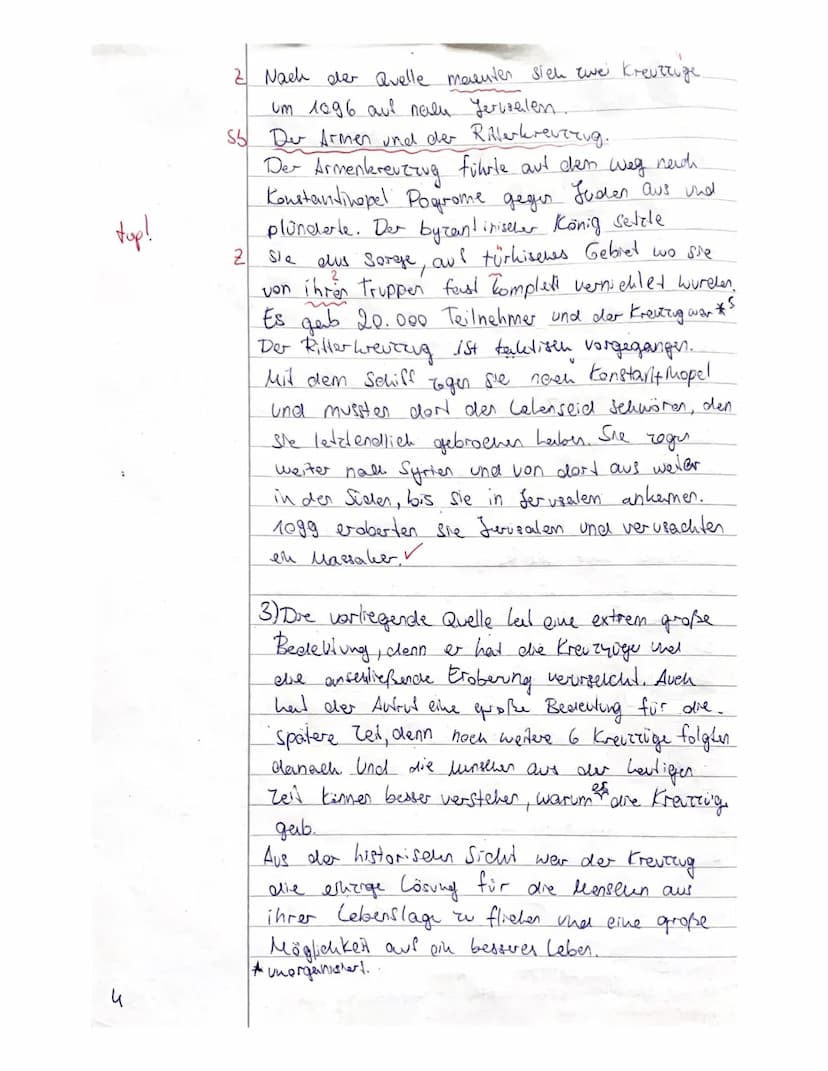 Z Nach der Quelle machten sich zwei Kreutzüge
um 1096 auf nach Jerusalem.
Sb Der Armen und der Ritterkreutzug.
Der Armenkreutzug führte auf dem Weg nach
Konstantinopel Pogrome gegen Juden aus und
plünderte. Der byzantinischer König setzte
top!
Z sie aus Sorge, auf türkisches Gebiet wo sie
?
von ihren Truppen fast komplett vernichtet wurden.
Es gab 20.000 Teilnehmer und der Kreutzug war * S
Der Ritterkreutzug ist taktisch vorgegangen.
Mit dem Schiff zogen sie nach Konstantinopel
und mussten dort den Lehenseid schwören, den
sie letztendlich gebrochen haben. Sie zogen
weiter nach Syrien und von dort aus weiter
in den Süden, bis sie in Jerusalem ankamen.
1099 eroberten sie Jerusalem und verusachten
ein Massaker. ✓
3) Die vorliegende Quelle hat eine extrem große
Bedeutung, denn er hat die Kreuzzüge und
die anschließende Eroberung verursacht. Auch
hat der Aufruf eine große Bedeutung für die
spätere Zeit, denn noch weitere 6 Kreutzüge folgten
danach und die Menschen aus der heutigen
Zeit können besser verstehen, warum es die Kreutzüge
gab.
Aus der historischen Sicht war der Kreutzug
die einzige Lösung für die Menschen aus
ihrer Lebenslage zu fliehen und eine große
Möglichkeit auf ein besseres Leben.
* unorganisiert.
4